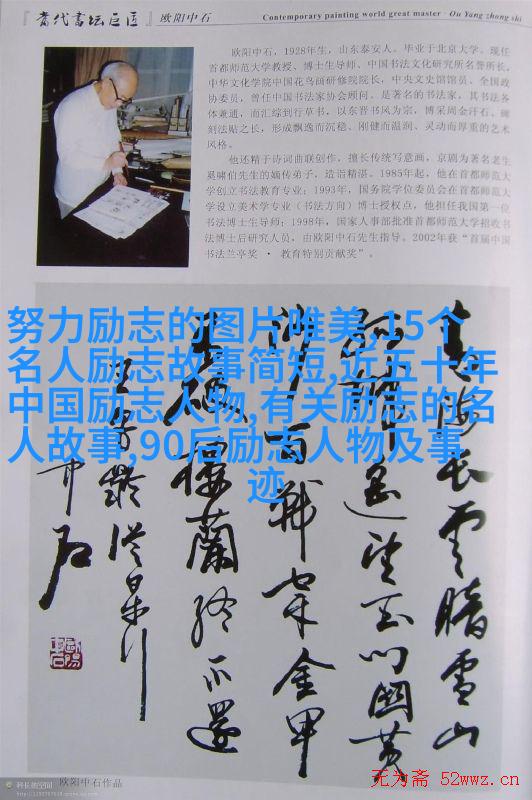 『当代书坛巨匠』欧阳中石
Contemporary painting world great master · Ou Yang zhong shi
欧阳中石，1928年生，山东泰安人。毕业于北京大学。现任
首都师范大学教授、博士生导师、中国书法文化研究所名誉所长，
中华文化学院中国花鸟画研修院院长，中央文史馆馆员、全国政
协委员，曾任中国书法家协会顾问。是著名的书法家，其书法各
体兼通，而汇综到行草书，以东晋书风为宗，博采周金汗石、碑
刻法贴之长，形成飘逸而沉稳、刚健而温润、灵动而厚重的艺术
风格。
他还精于诗词曲联创作，擅长传统写意画，京剧为著名老生
奚啸伯先生的嫡传弟子，造诣精湛。1985年起，他在首都师范大
学创立书法教育专业；1993年，国务院学位委员会在首都师范大
学设立美术学专业（书法方向）博士授权点，他担任我国第一位
书法博士生导师；1998年，国家人事部批准首都师范大学招收书
法博士后研究人员，由欧阳中石先生指导。2002年获“首届中国
书法兰亭奖 · 教育特别贡献奖”。
努力励志的图片唯美,15个
名人励志故事简短,近五十年
中国励志人物,有关励志的名
人故事,90后励志人物及事
迹
青海长云暗雪山
孤城遥望玉门关黄
沙百战穿金甲
不破楼兰终不还
王昌龄从军行
中石
欧阳中石作品
科长的空间
无为斋 52wwz.cn